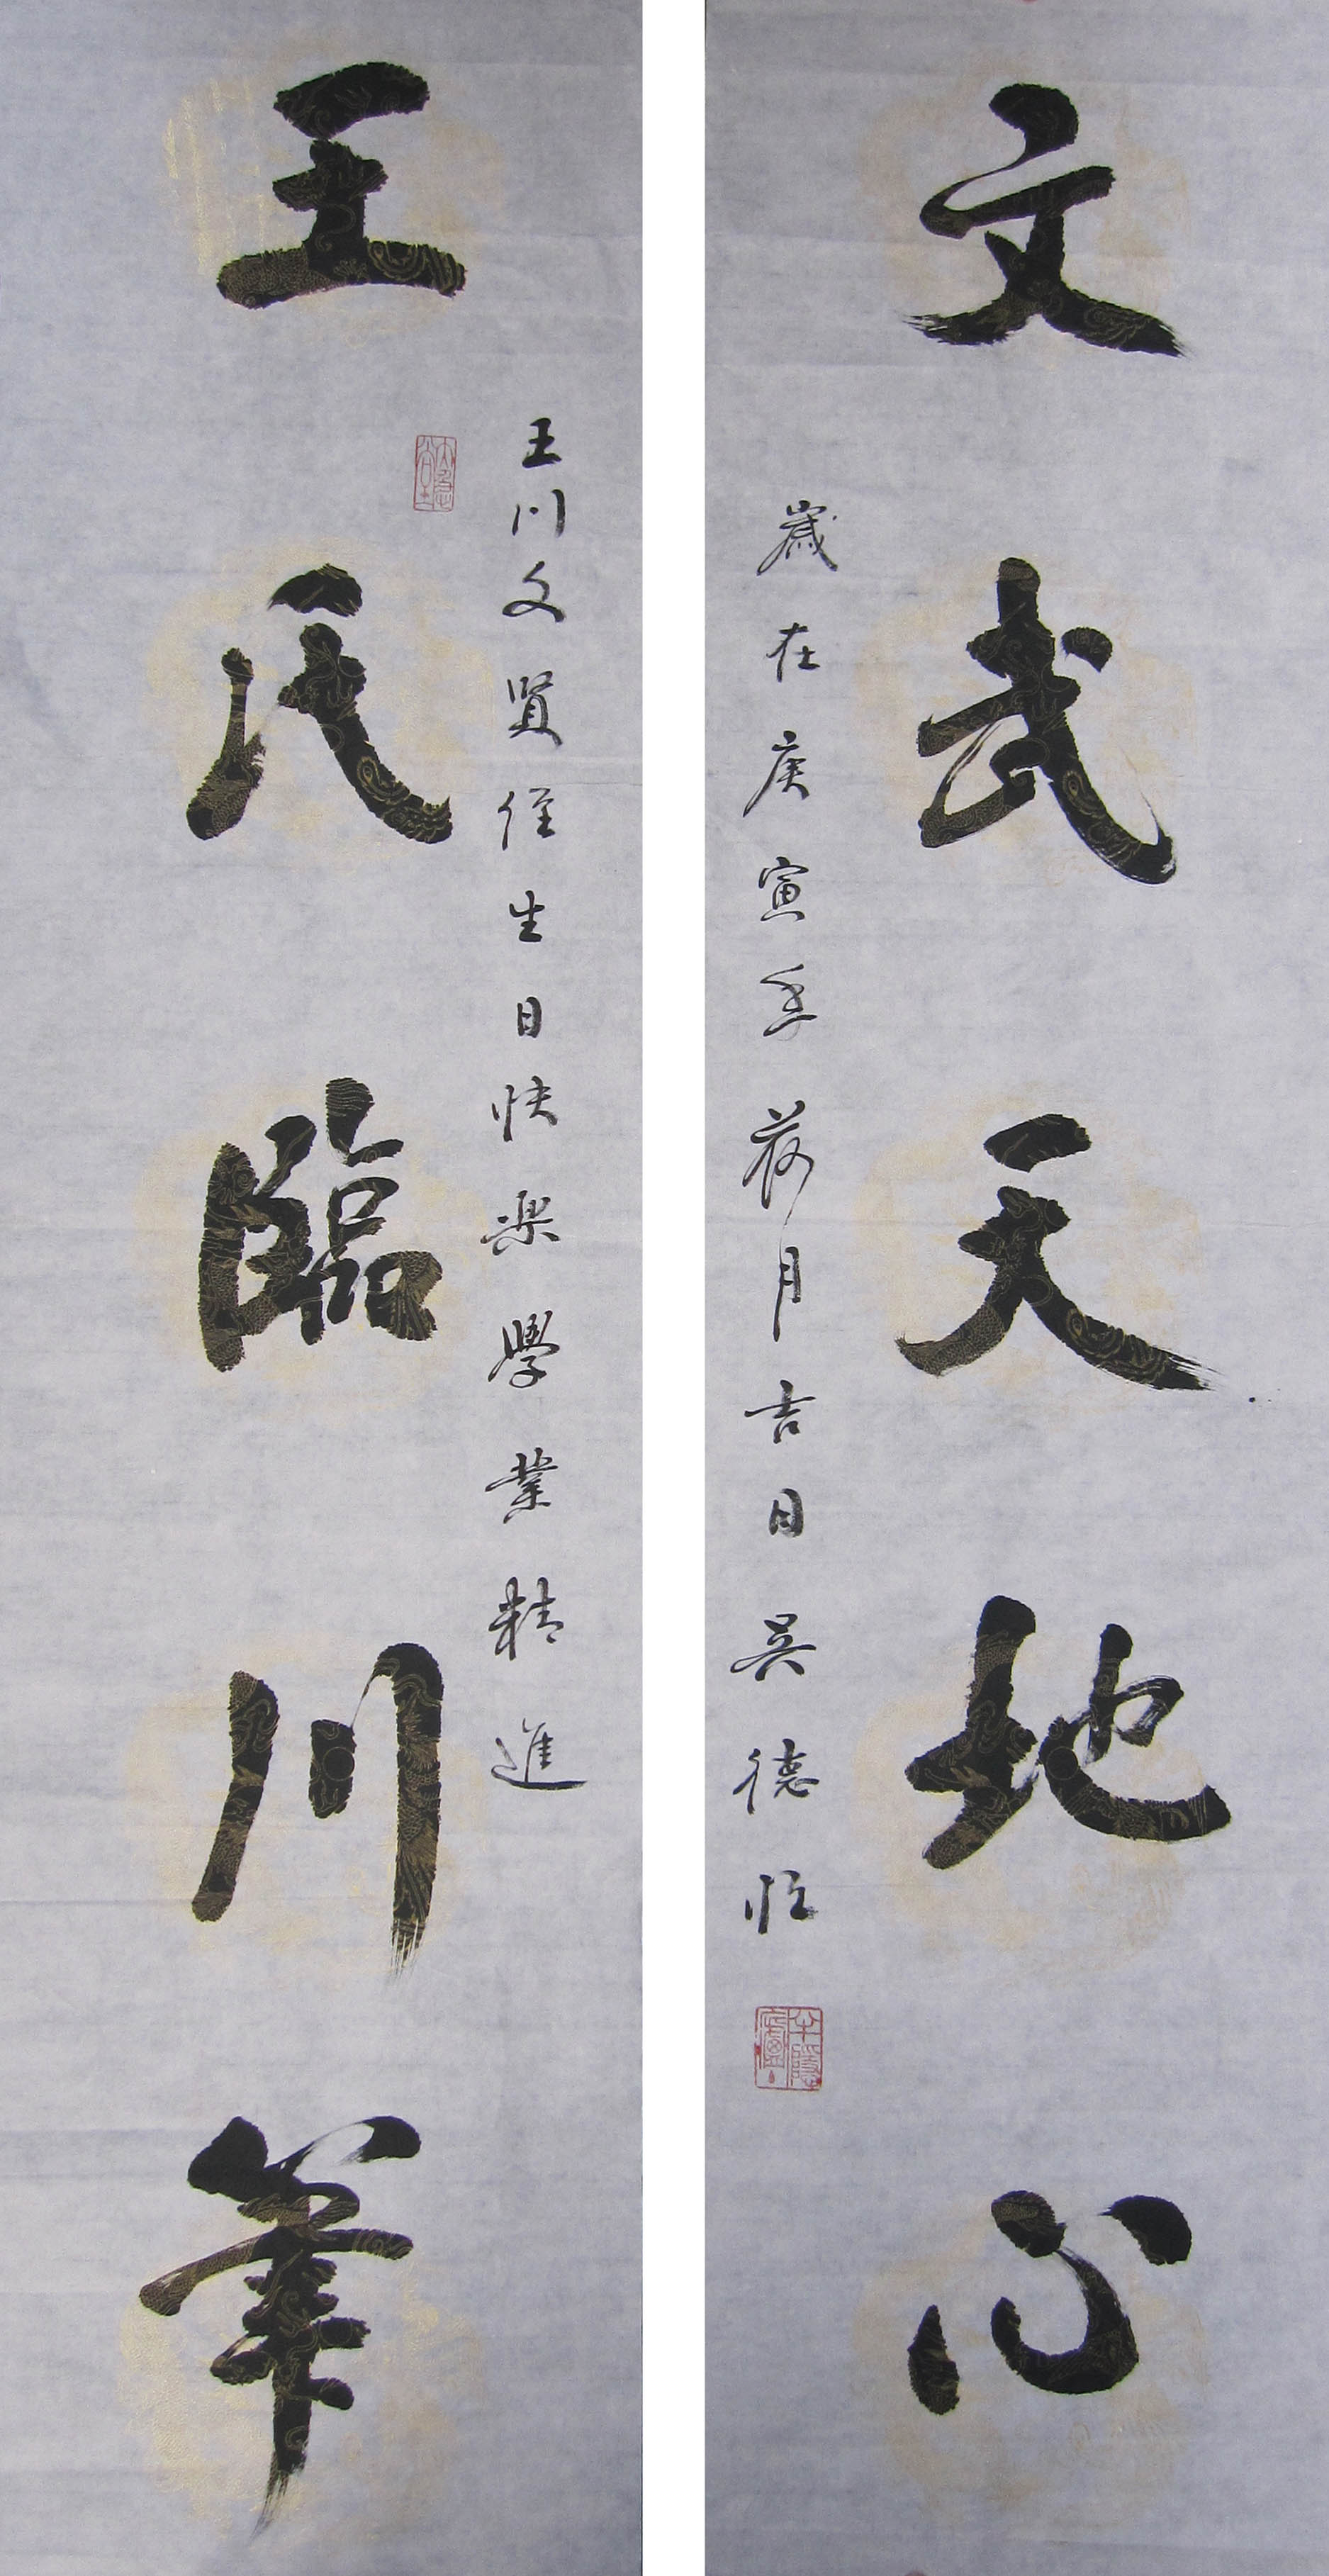 文武天地心
歲在庚寅年荷月吉日吳德恒
王川文賢侄生日快樂學業精進
王氏臨川筆